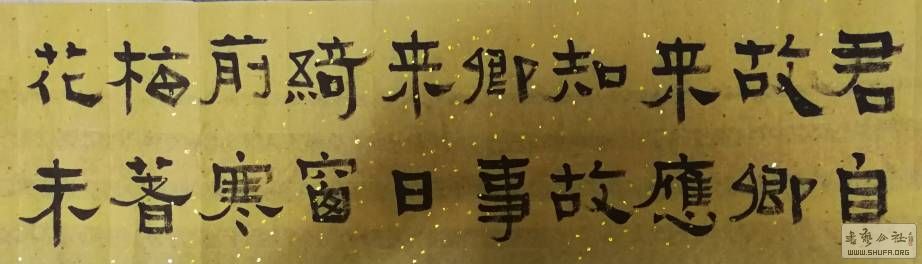 君自
故鄉
来應
知故
鄉事
来日
綺窗
前寒
梅著
花未
书艺公社
WWW.SHUFA.ORG